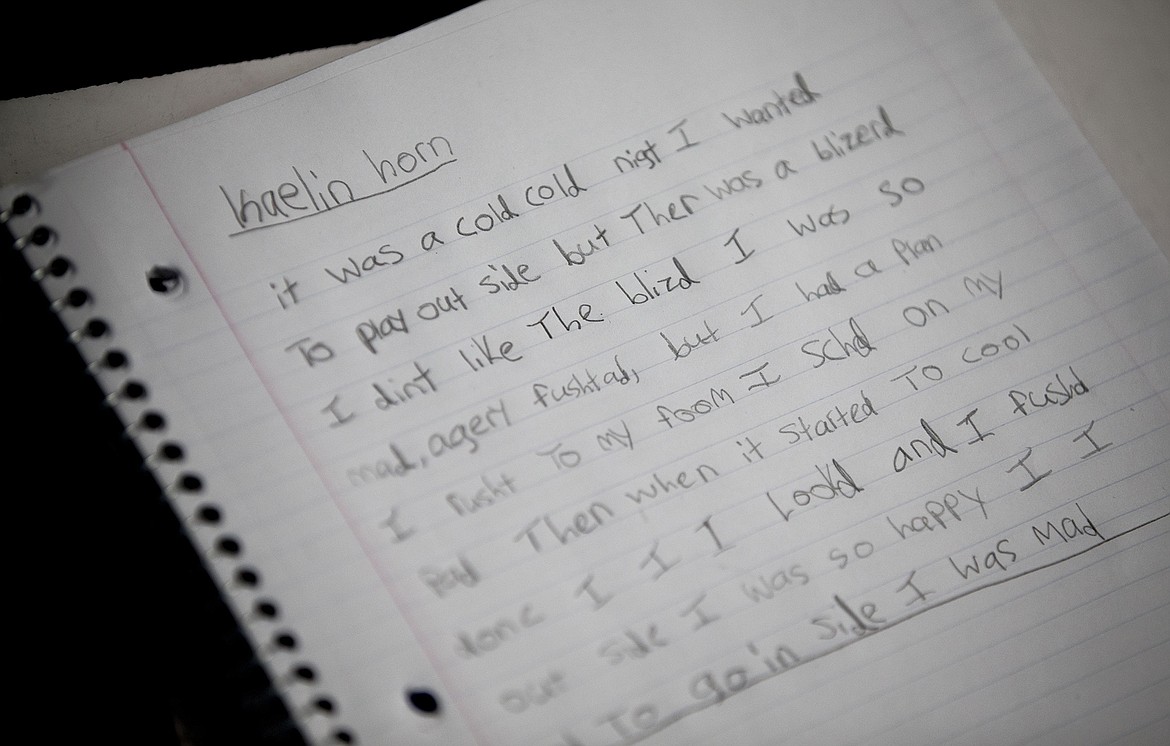 Kaelin horn
it was a cold cold nigt I wanted
To play out side but Ther was a blizerd
I dint like The blizd I was so
mad, agery fushtad, but I had a plan
I rusht To my room I Schd on my
Pad Then when it started To cool
done I I I Look'd and I rushd
out side I was so happy I I
To go in side I was mad